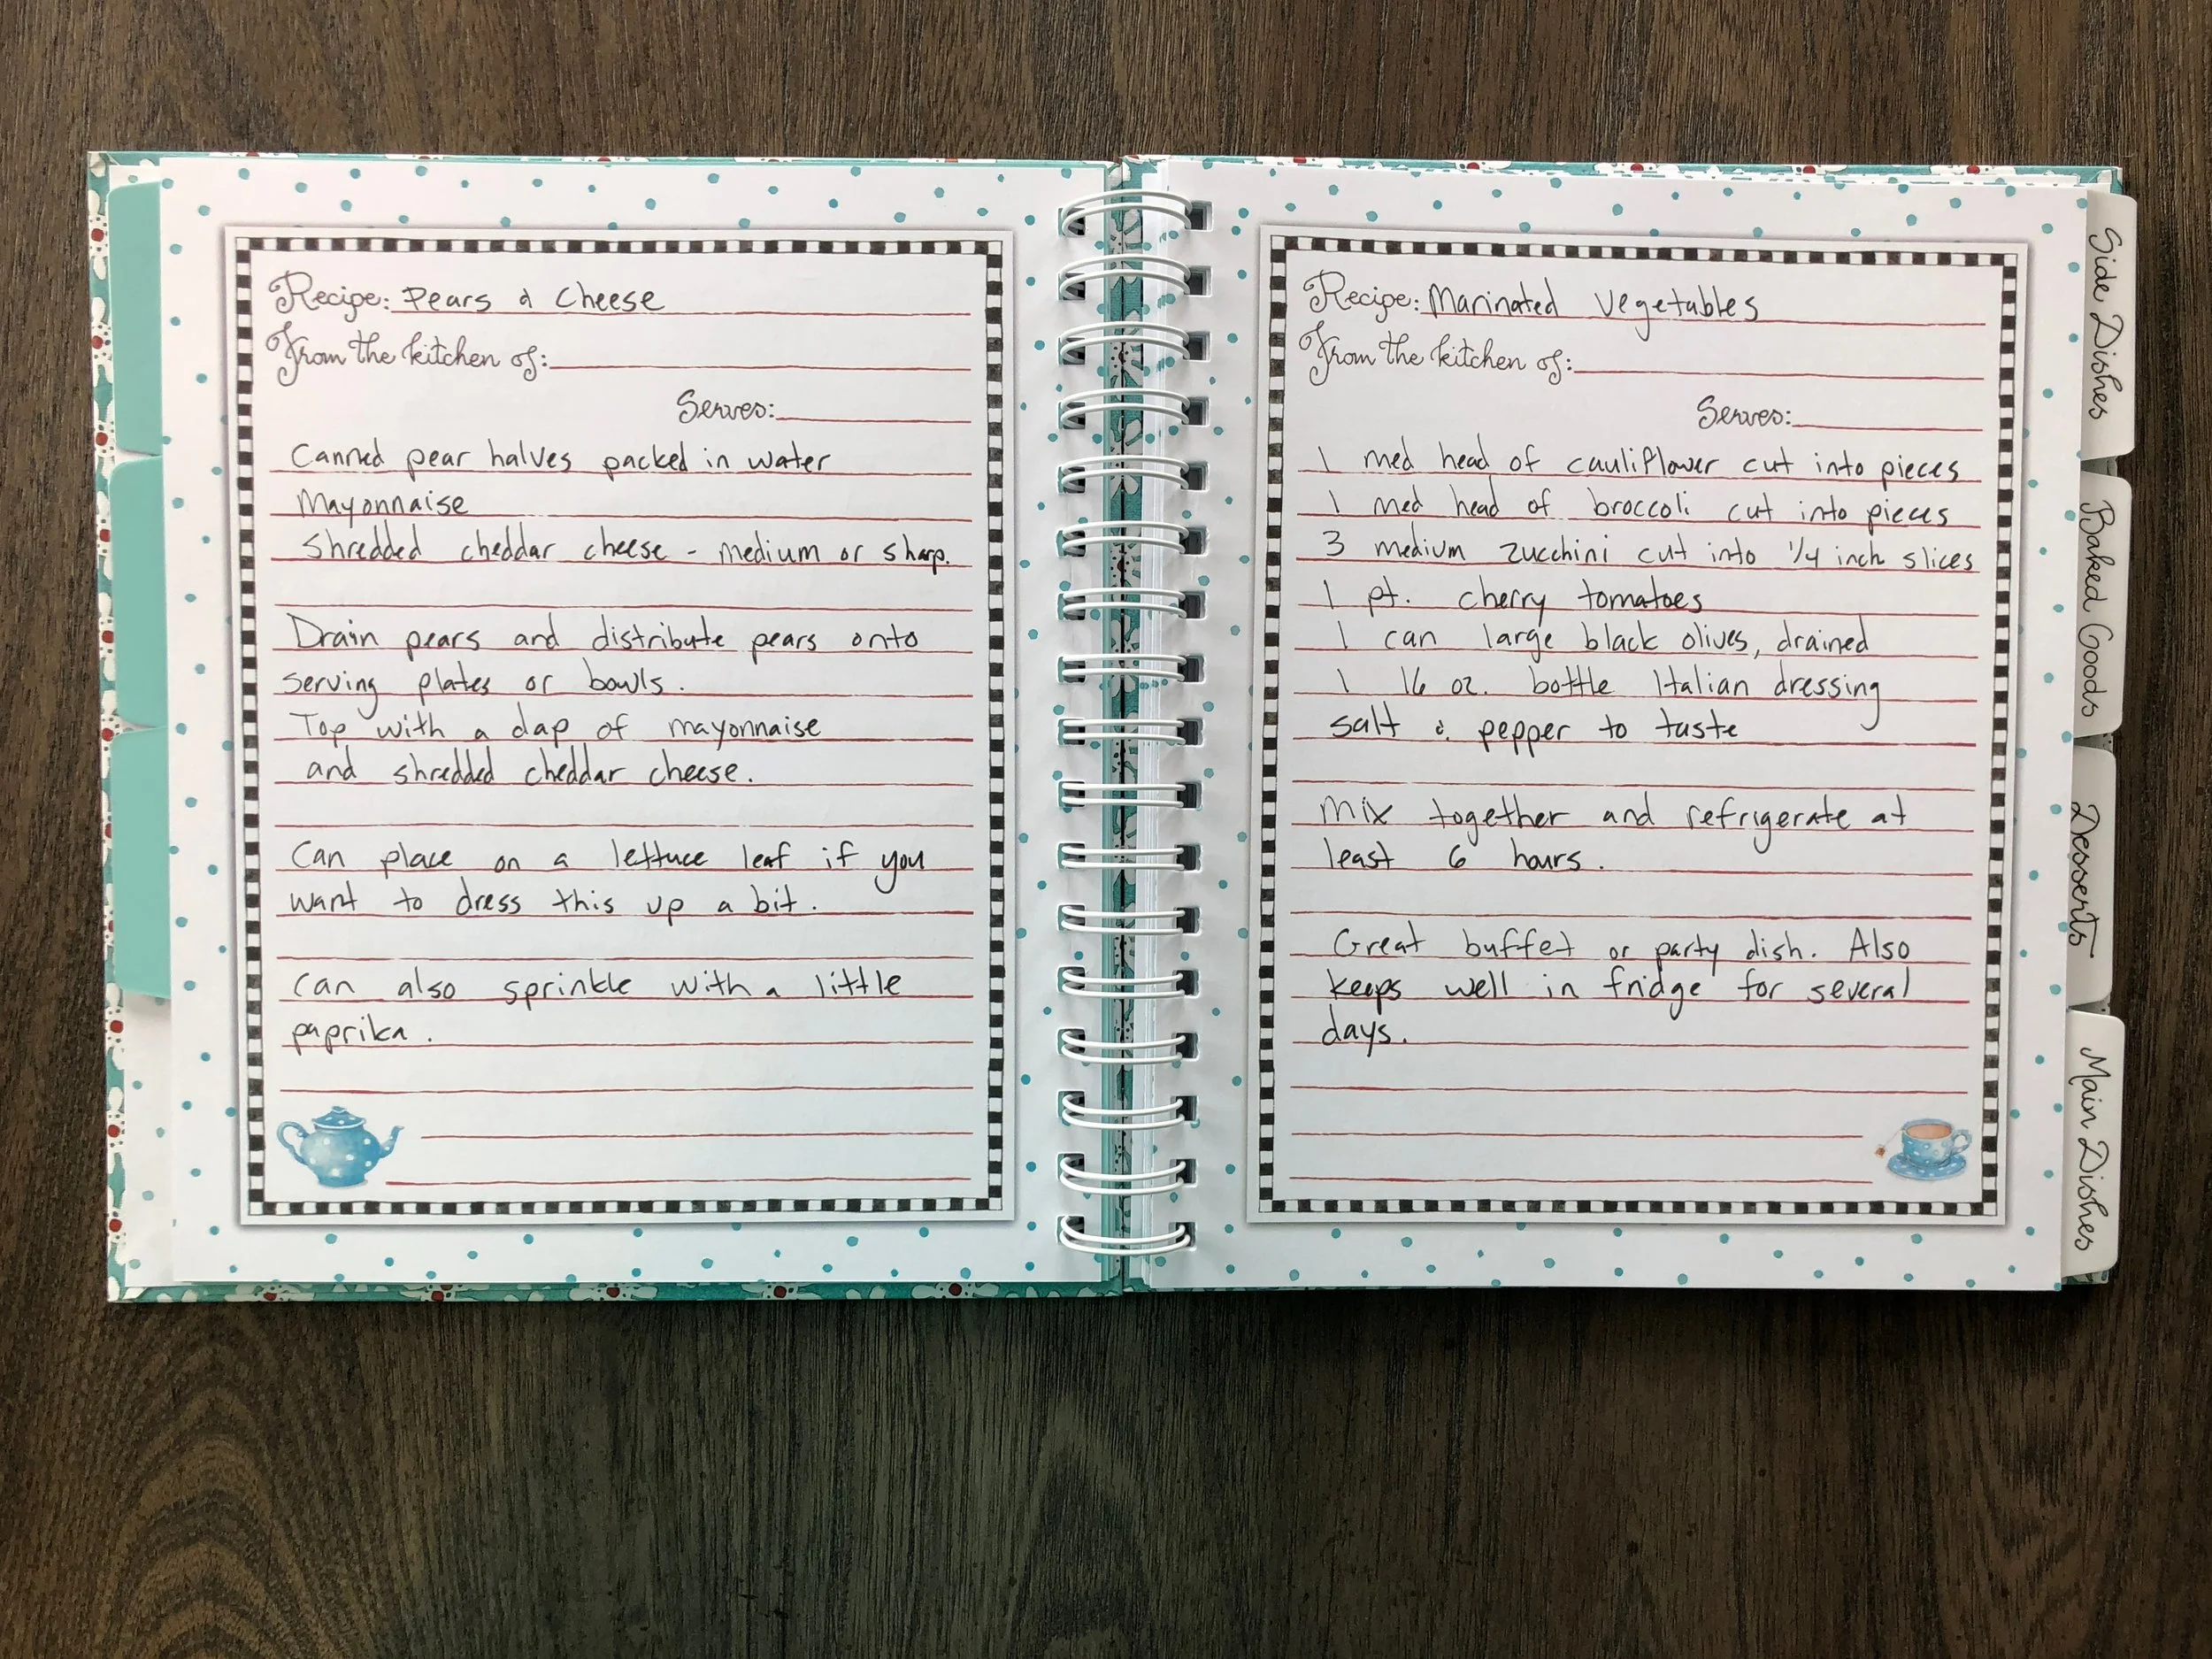 Recipe: Pears & Cheese
From the kitchen of:
Serves:
Canned pear halves packed in water
Mayonnaise
Shredded cheddar cheese - medium or sharp.
Drain pears and distribute pears onto
serving plates or bowls.
Top with a dap of mayonnaise
and shredded cheddar cheese.
Can place on a lettuce leaf if you
want to dress this up a bit.
Can also sprinkle with a little
paprika.
Recipe: Marinated Vegetables
From the kitchen of:
Serves:
1 med head of cauliflower cut into pieces
1 med head of broccoli cut into pieces
3 medium zucchini cut into 1/4 inch slices
1 pt. cherry tomatoes
1 can large black olives, drained
1 16 oz. bottle Italian dressing
salt & pepper to taste
Mix together and refrigerate at
least 6 hours.
Great buffet or party dish. Also
keeps well in fridge for several
days.
Side Dishes
Baked Goods
Desserts
Main Dishes